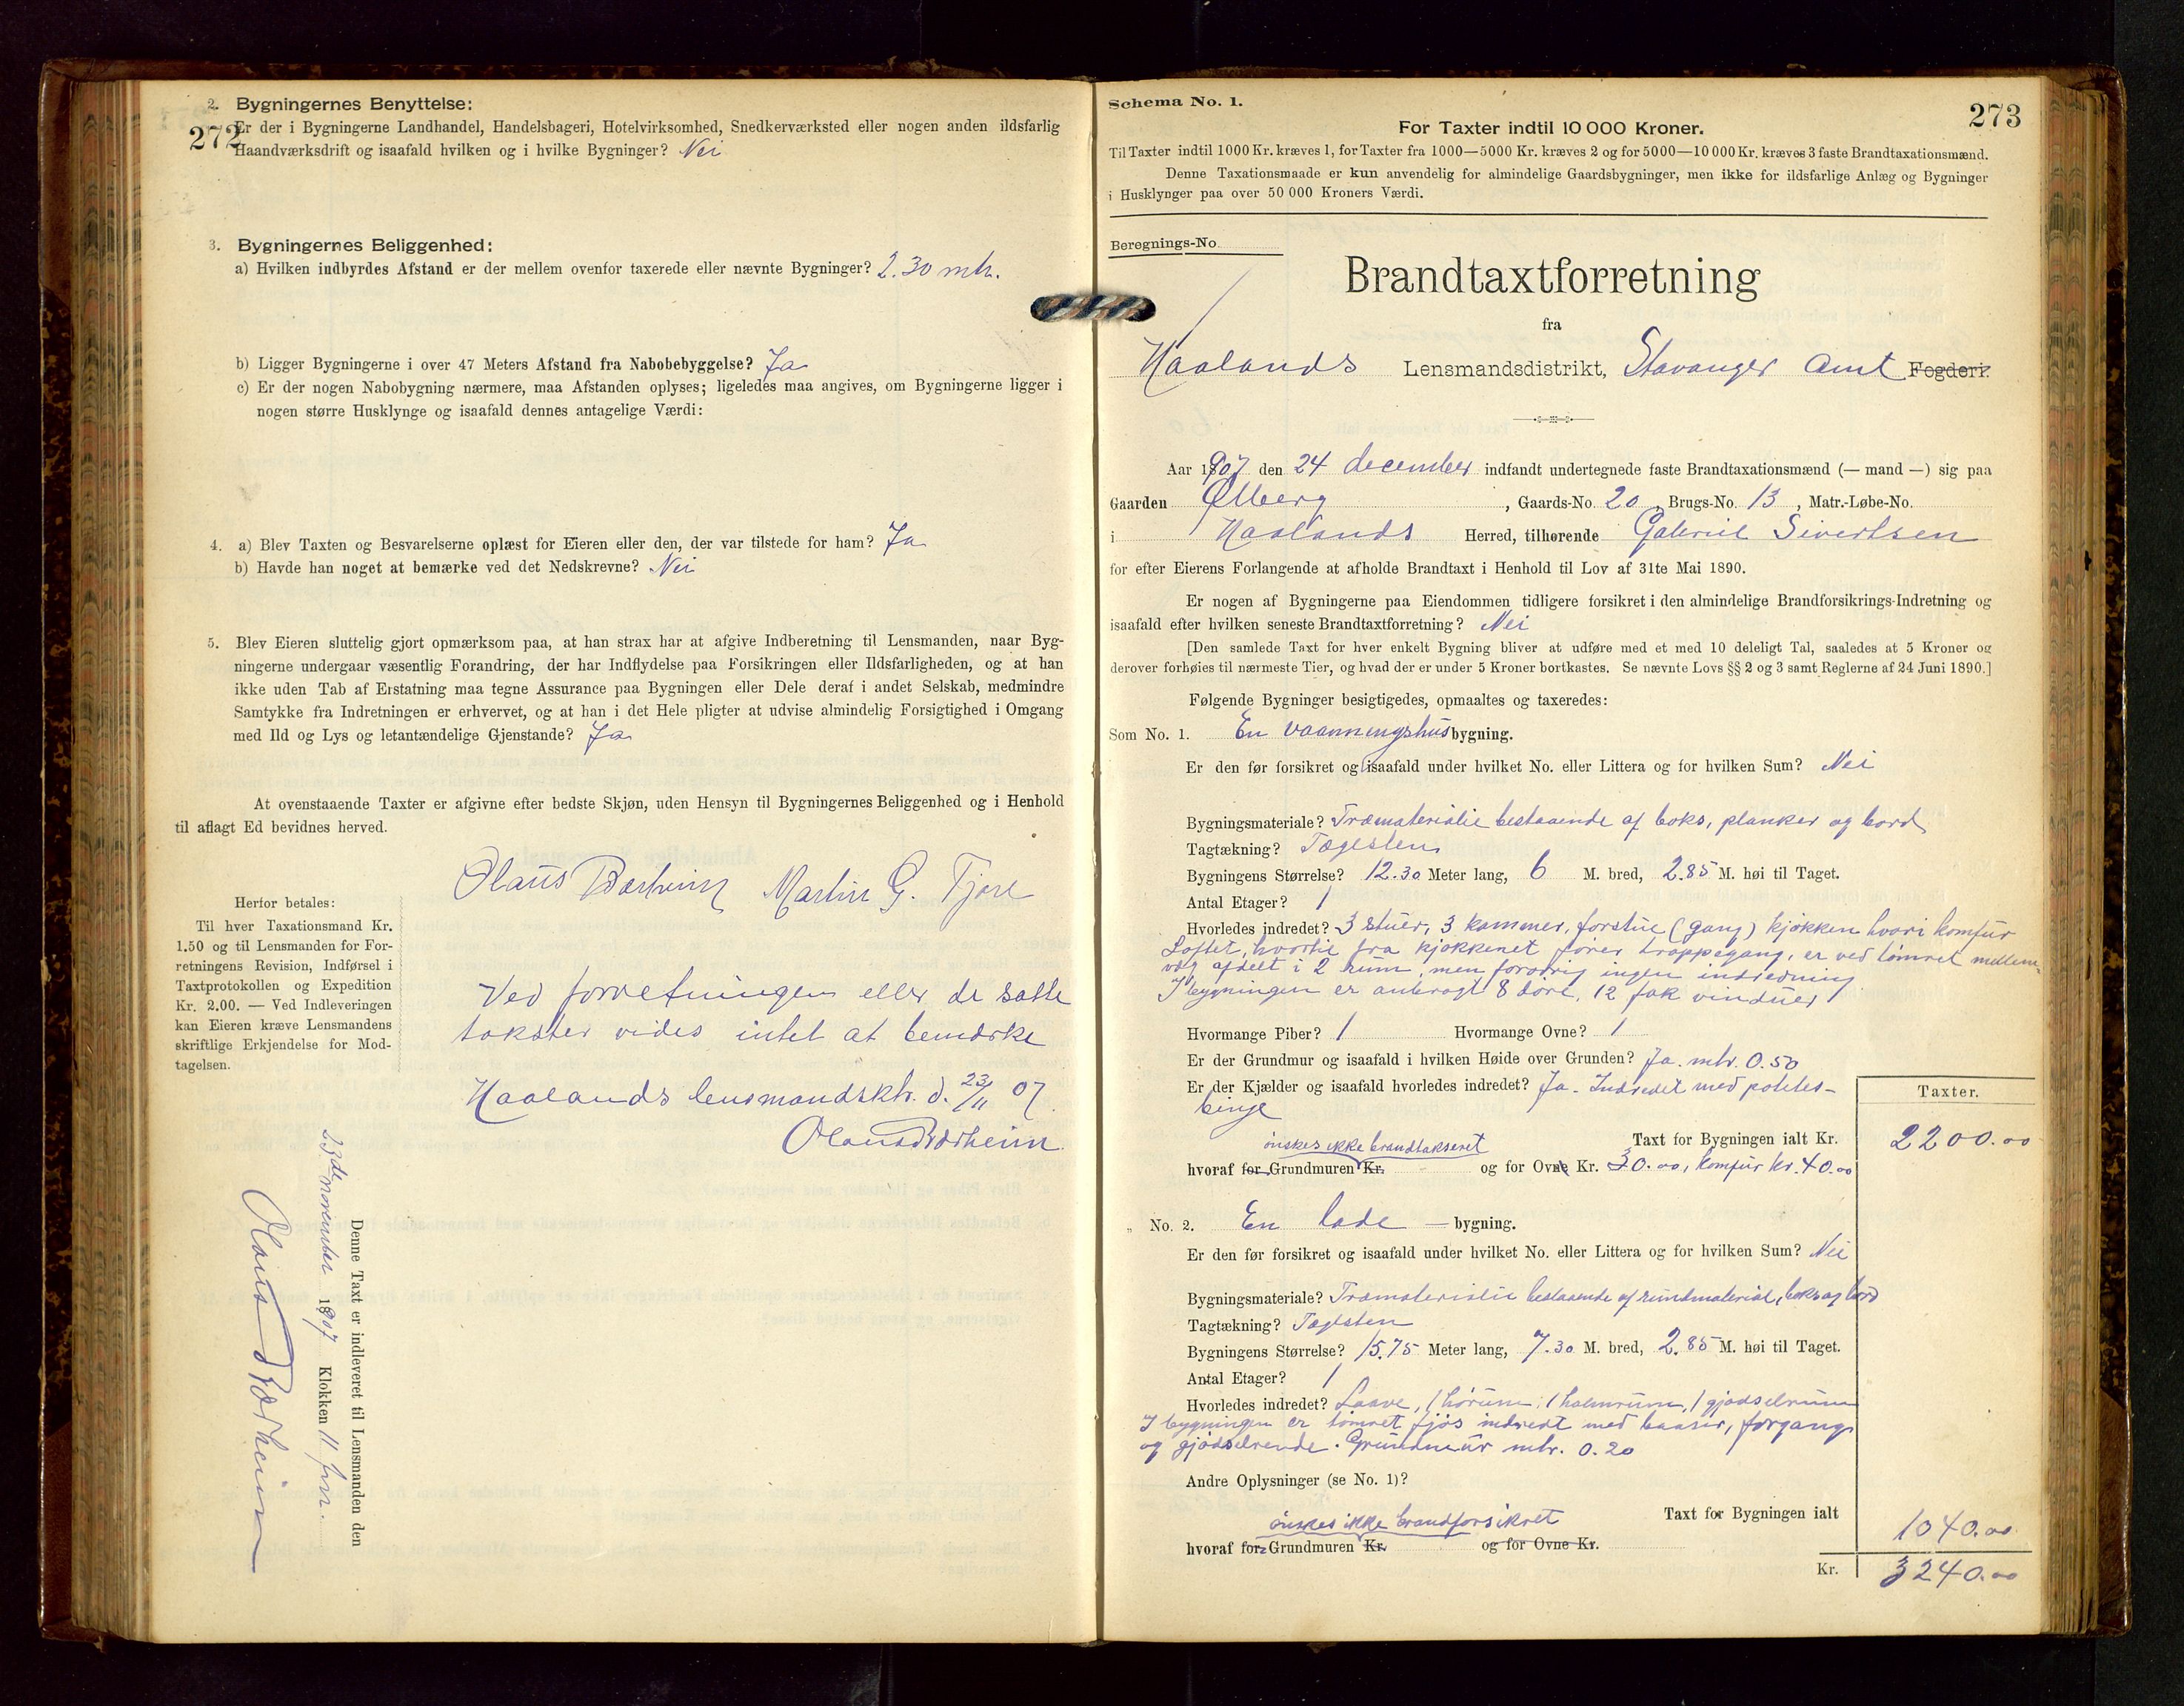 272
2. Bygningernes Benyttelse:
Er der i Bygningerne Landhandel, Handelsbageri, Hotelvirksomhed, Snedkerværksted eller nogen anden ildsfarlig
Haandværksdrift og isaafald hvilken og i hvilke Bygninger? Nei
3. Bygningernes Beliggenhed:
a) Hvilken indbyrdes Afstand er der mellem ovenfor taxerede eller nævnte Bygninger? 2.30 mtr.
b) Ligger Bygningerne i over 47 Meters Afstand fra Nabobebyggelse? Ja
c) Er der nogen Nabobygning nærmere, maa Afstanden oplyses; ligeledes maa angives, om Bygningerne ligger i
nogen større Husklynge og isaafald dennes antagelige Værdi:
4. a) Blev Taxten og Besvarelserne oplæst for Eieren eller den, der var tilstede for ham? Ja
b) Havde han noget at bemærke ved det Nedskrevne? Nei
5. Blev Eieren sluttelig gjort opmærksom paa, at han strax har at afgive Indberetning til Lensmanden, naar Byg-
ningerne undergaar væsentlig Forandring, der har Indflydelse paa Forsikringen eller Ildsfarligheden, og at han
ikke uden Tab af Erstatning maa tegne Assurance paa Bygningen eller Dele deraf i andet Selskab, medmindre
Samtykke fra Indretningen er erhvervet, og at han i det Hele pligter at udvise almindelig Forsigtighed i Omgang
med Ild og Lys og letantændelige Gjenstande? Ja
At ovenstaaende Taxter er afgivne efter bedste Skjøn, uden Hensyn til Bygningernes Beliggenhed og i Henhold
til aflagt Ed bevidnes herved.
Olaus Bærheim Martin G. Tjore
Herfor betales:
Til hver Taxationsmand Kr.
1.50 og til Lensmanden for For-
retningens Revision, Indførsel i
Taxtprotokollen og Expedition
Kr. 2.00. — Ved Indleveringen
kan Eieren kræve Lensmandens
skriftlige Erkjendelse for Mod-
tagelsen.
Ved forretningen eller de satte
takster vides intet at bemærke
Haalands lensmandsktr. d. 23/11 07.
Olaus Bærheim
Denne Taxt er indleveret til Lensmanden den
23de november 1907 Klokken 11 fm.
Olaus Bærheim
273
Schema No. 1.
For Taxter indtil 10 000 Kroner.
Til Taxter indtil 1000 Kr. kræves 1, for Taxter fra 1000—5000 Kr. kræves 2 og for 5000—10 000 Kr. kræves 3 faste Brandtaxationsmænd.
Denne Taxationsmaade er kun anvendelig for almindelige Gaardsbygninger, men ikke for ildsfarlige Anlæg og Bygninger
i Husklynger paa over 50 000 Kroners Værdi.
Beregnings-No.
Brandtaxtforretning
fra
Haalands Lensmandsdistrikt, Stavanger Amt Fogderi.
Aar 1907 den 24 december indfandt undertegnede faste Brandtaxationsmænd (— mand —) sig paa
Gaarden Ølberg, Gaards-No. 20, Brugs-No. 13, Matr.-Løbe-No.
i Haalands Herred, tilhørende Gabriel Sivertsen
for efter Eierens Forlangende at afholde Brandtaxt i Henhold til Lov af 31te Mai 1890.
Er nogen af Bygningerne paa Eiendommen tidligere forsikret i den almindelige Brandforsikrings-Indretning og
isaafald efter hvilken seneste Brandtaxtforretning? Nei
[Den samlede Taxt for hver enkelt Bygning bliver at udføre med et med 10 deleligt Tal, saaledes at 5 Kroner og
derover forhøies til nærmeste Tier, og hvad der er under 5 Kroner bortkastes. Se nævnte Lovs §§ 2 og 3 samt Reglerne af 24 Juni 1890.]
Følgende Bygninger besigtigedes, opmaaltes og taxeredes:
Som No. 1. En vaaningshusbygning.
Er den før forsikret og isaafald under hvilket No. eller Littera og for hvilken Sum? Nei
Bygningsmateriale? Træmaterialie bestaaende af boks, planker og bord
Tagtækning? Taglsten
Bygningens Størrelse? 12.30 Meter lang, 6 M. bred, 2.85 M. høi til Taget.
Antal Etager? 1
Hvorledes indredet? 3 stuer, 3 kammer, forstue (gang) kjøkken hvori komfur
Loftet, hvortil fra kjøkkenet fører trappegang, er ved tømret mellem-
væg afdelt i 2 rum, men forøvrig ingen indredning
I bygningen er anbragt 8 døre, 12 fak vinduer
Hvormange Piber? 1 Hvormange Ovne? 1
Er der Grundmur og isaafald i hvilken Høide over Grunden? Ja. mtr. 0.50
Er der Kjælder og isaafald hvorledes indredet? Ja. Indredet med potetes-
binge
Taxter.
ønskes ikke brandtakseret
Taxt for Bygningen ialt Kr. 2200.00
hvoraf for Grundmuren Kr. og for Ovne Kr. 30.00, komfur kr. 40.00
" No. 2. En lade — bygning.
Er den før forsikret og isaafald under hvilket No. eller Littera og for hvilken Sum? Nei
Bygningsmateriale? Træmaterialie bestaaende af rundmaterial, boks og bord
Tagtækning? Taglsten
Bygningens Størrelse? 15.75 Meter lang, 7.30 M. bred, 2.85 M. høi til Taget.
Antal Etager? 1
Hvorledes indredet? Laave, 1 hørum, 1 halmrum, 1 gjødselrum
I bygningen er tømret fjøs indredt med baaser, forgang
og gjødselrende. Grundmur mtr. 0.20
Andre Oplysninger (se No. 1)?
ønskes ikke brandforsikret
Taxt for Bygningen ialt 1040.00
hvoraf for Grundmuren Kr. og for Ovne Kr.
Kr. 3240.00